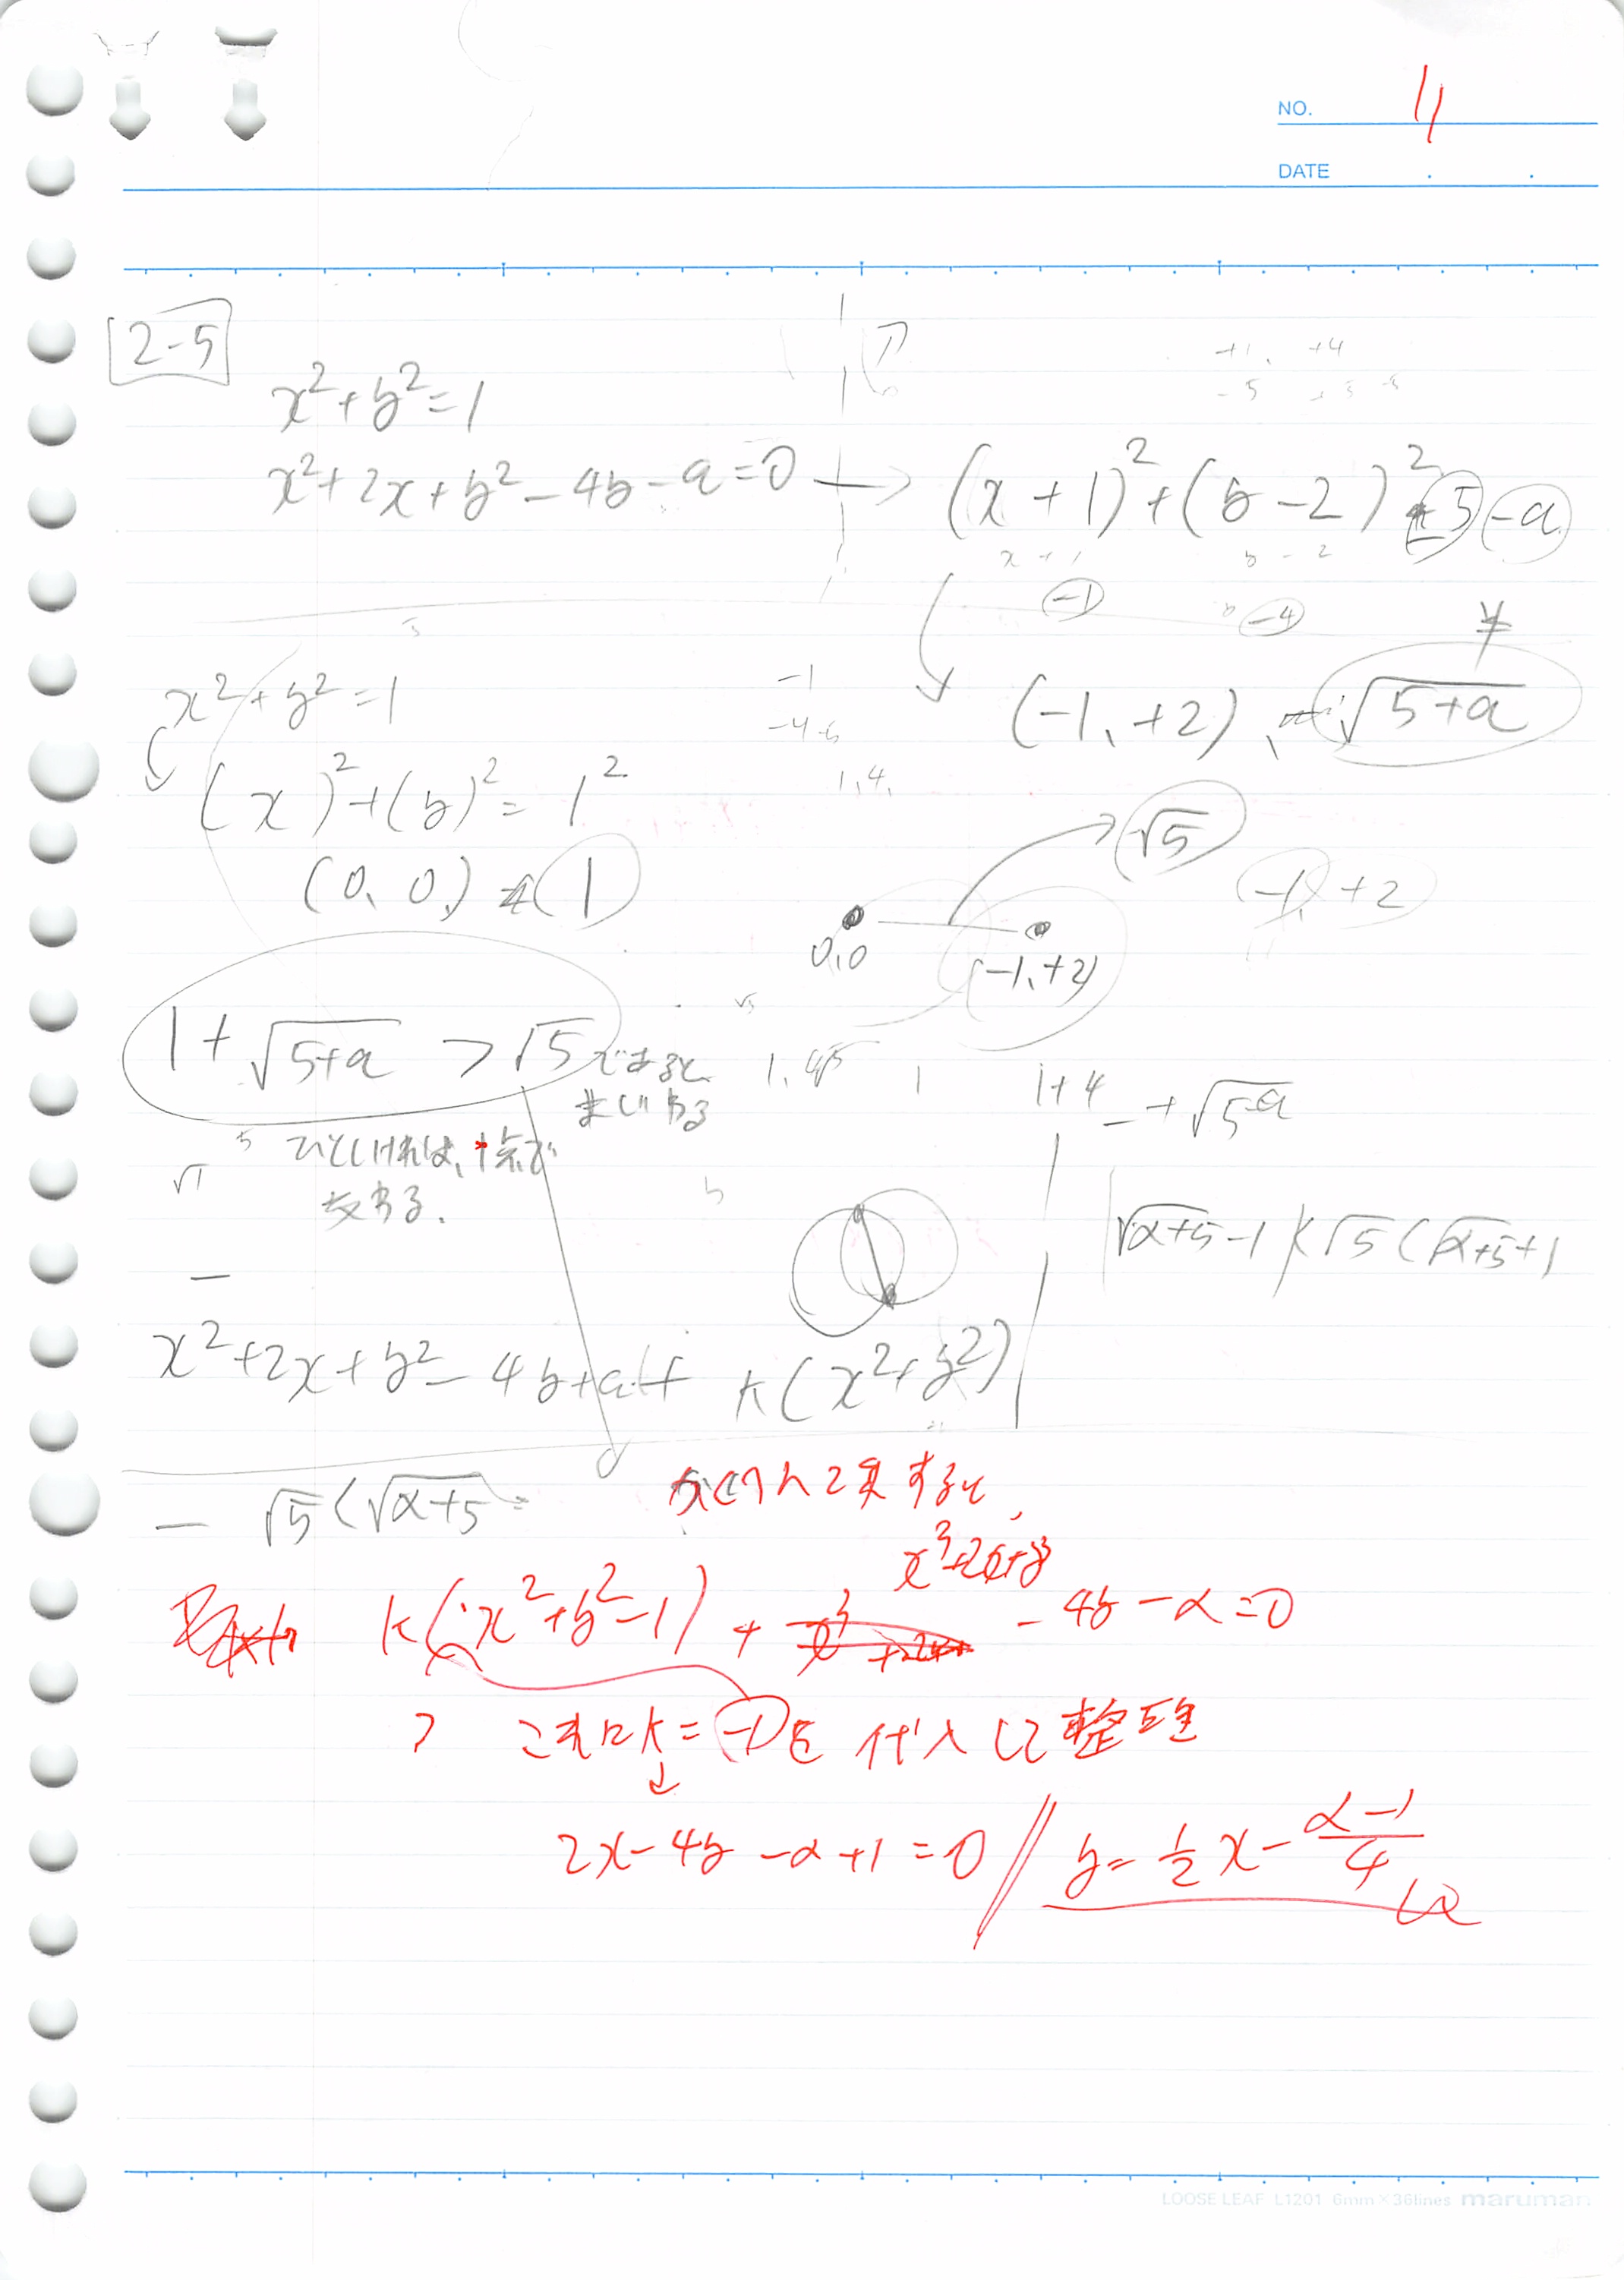 NO. 11
DATE
2-5
x²+y²=1
x²+2x+y²-4y-a=0 → (x+1)²+(y-2)²=5-a
x+1 y-2
-1 -4
x²+y²=1
(-1,+2), √5+a
(x)²+(y)²=1²
1,4,
√5
(0,0,) 1
-1,+2
0,0
(-1,+2)
1+√5+a >√5 であると、
まじわる
1+4
-+√5-a
ひとしければ、1点で
交わる.
√α+5-1<√5<√α+5+1
x²+2x+y²-4y+a+k(x²+y²)
√5<√α+5
k(x²+y²-1)+x³+2x+y³-4y-α=0
これにk=-1を代入して整理
2x-4y-α+1=0 // y=½x-(α-1)/4
LOOSE LEAF L1201 6mm×36lines maruman